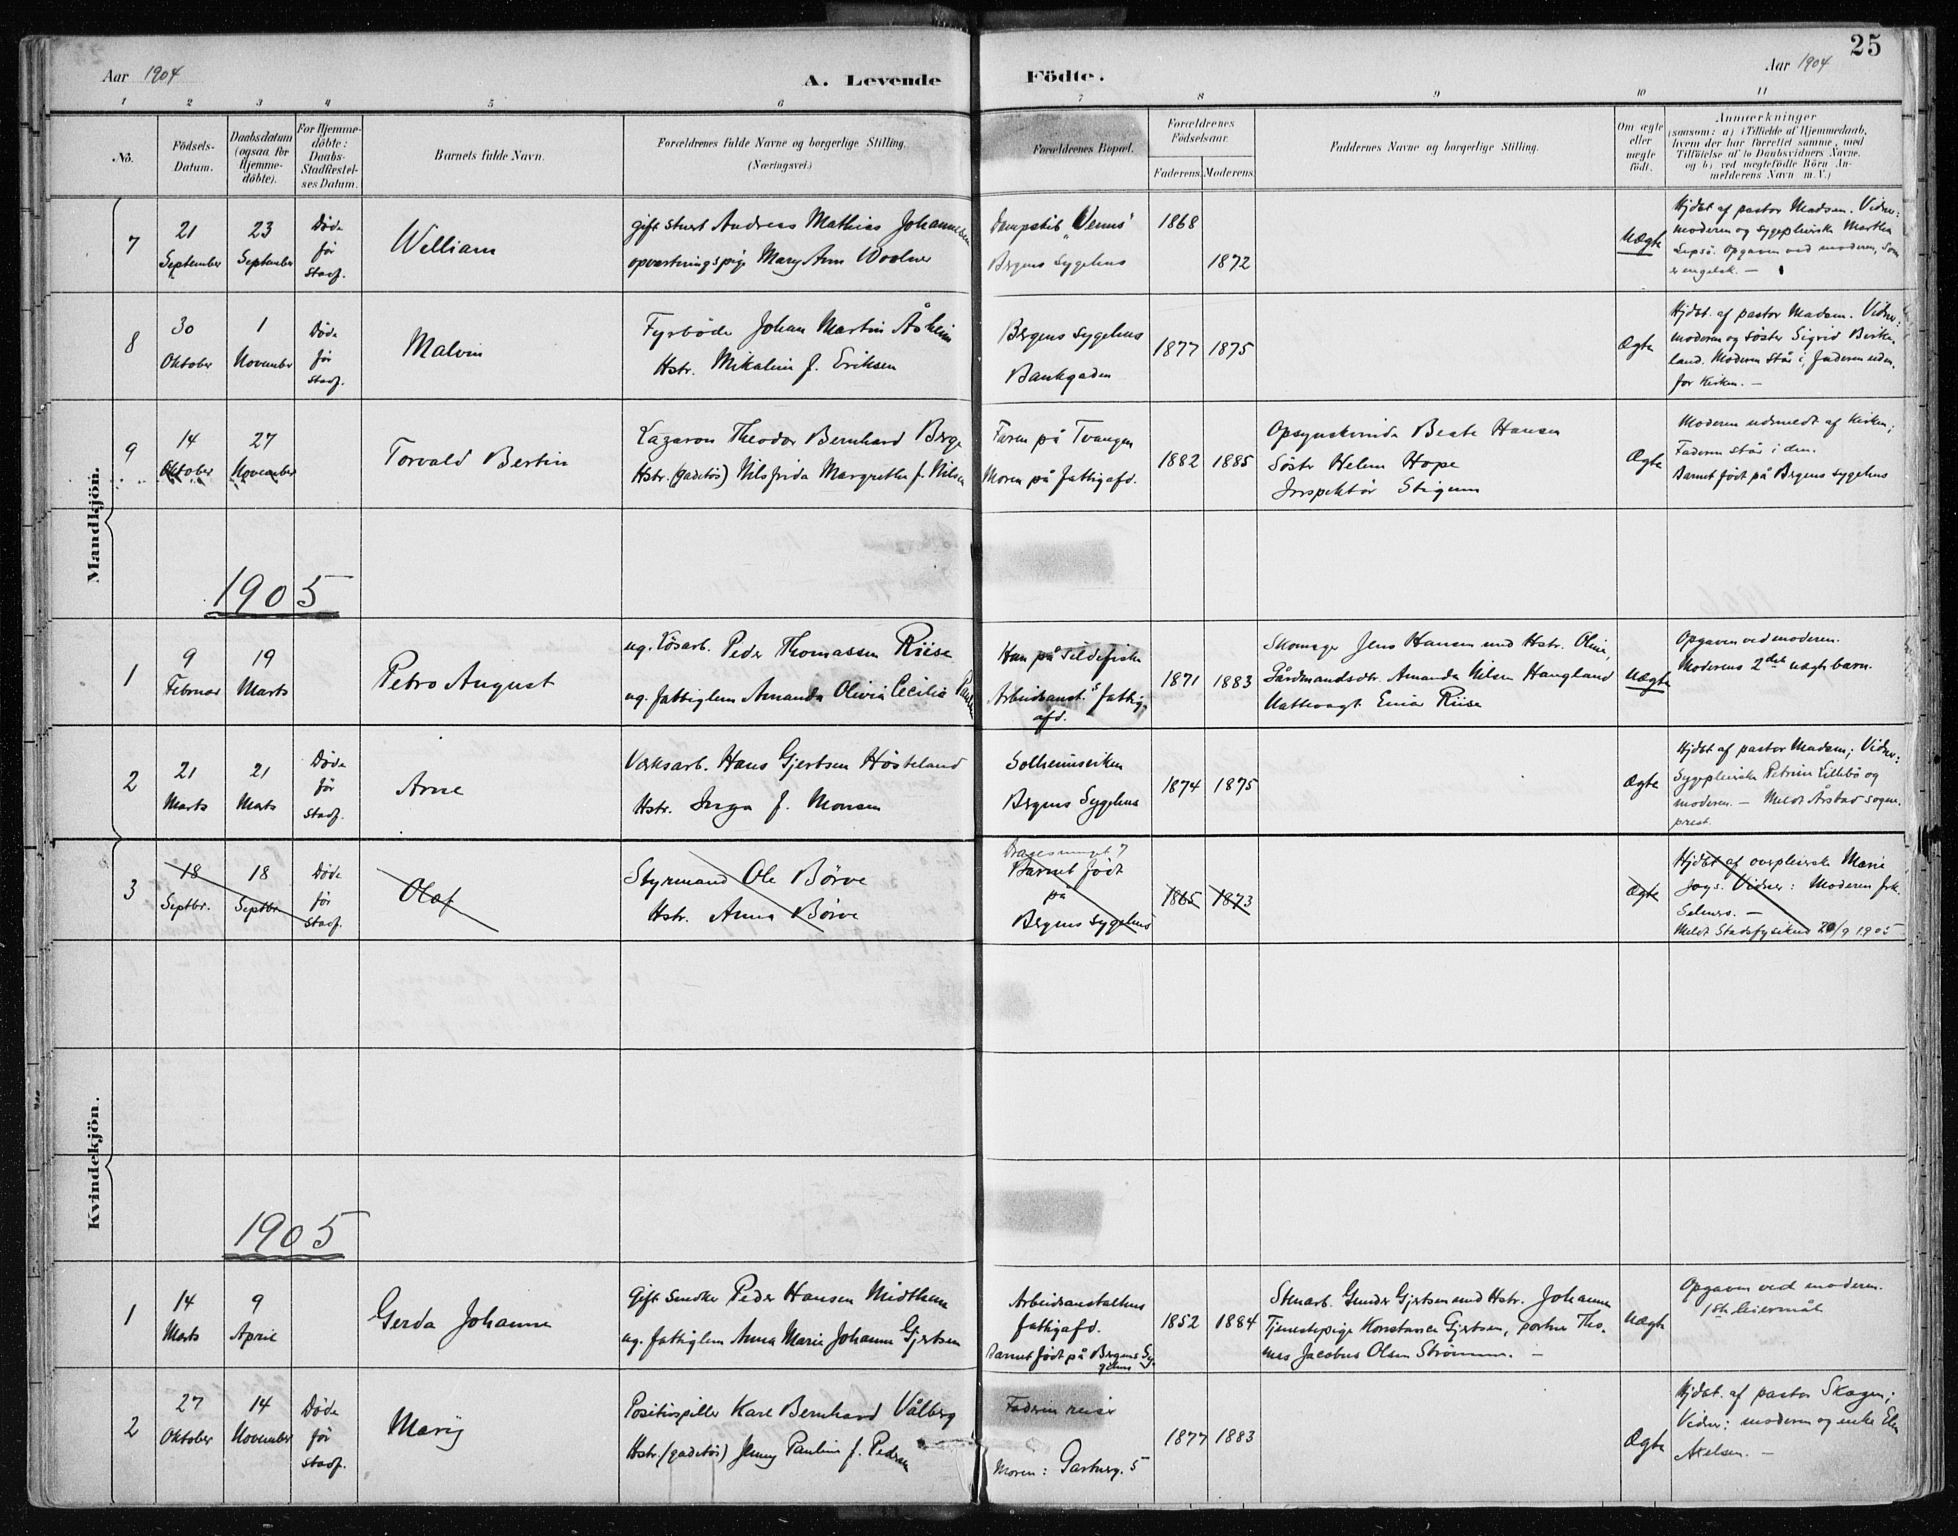 25
Aar 1904
A. Levende Födte.
Aar 1904
1 2 3 4 5 6 7 8 9 10 11
No.
Födsels-
Datum.
Daabsdatum
(ogsaa for
Hjemme-
döbte).
For Hjemme-
döbte:
Daabs-
Stadfæstel-
ses Datum.
Barnets fulde Navn.
Forældrenes fulde Navne og borgerlige Stilling.
(Næringsvei.)
Forældrenes Bopæl.
Forældrenes
Födselsaar.
Faderens. Moderens.
Faddernes Navne og borgerlige Stilling.
Om ægte
eller
uægte
födt.
Anmærkninger
(saasom: a) i Tilfælde af Hjemmedaab,
hvem der har forrettet samme, med
Tilföielse af to Daabsvidners Navne,
og b) ved uegtefödte Börn An-
melderens Navn m. V.)
Mandkjön.
7
21
September
23
September
Döde
för
stadf.
William
gift stuert Andreas Mathias Johannesen
opvartningspige Mary Ann Woolner
Dampskib "Venus"
Bergens Sygehus
1868
1872
Uægte
Hjdbt af pastor Madsen. Vidner:
moderen og sygepleierske Martha
Lepsö. Opgaven ved moderen, som
er engelsk. —
8
30
Oktober
1
November
Döde
för
stadf.
Malvin
Fyrböde Johan Martin Åsheim
Hstr. Mikaline f. Eriksen
Bergens Sygehus
Bankgaden
1877 1875
Ægte
Hjdbt. af pastor Madsen. Vidner:
moderen og söster Sigrid Birke-
land. Moderen står i, Faderen uden-
for Kirken. —
9
14
Oktober
27
November
Torvald Bertin
Lazaron Theodor Bernhard Berge
Hstr. (gadetös) Nilsfrida Margrethe f. Nilsen
Faren på Tvangen
Moren på fattigafd.
1882 1885
Opsynskvinde Beate Hansen
Söster Helene Hope
Inspektör Stigum
Ægte
Moderen udmeldt af Kirken;
Faderen står i den.
Barnet födt på Bergens sygehus
1905
1
9
Februar
19
Marts
Petro August
ug. Lösarb. Peder Thomassen Riise
ug. fattiglem Amanda Olivia Cecilia
Han på sildefiske
Arbeidsanst.s fattig-
afd.
1871 1883
Skomager Jens Hansen med Hstr. Oline,
Gårdmandsdtr. Amanda Nilsen Haugland
Nattevagt Einar Riise
Uægte
Opgaven ved moderen.
Moderens 2det uagte barn.
2
21
Marts
21
Marts
Döde
för
stadf.
Arne
Værksarb. Hans Gjertsen Hösteland
Hstr. Inga f. Monsen
Solheimsviken
Bergens Sygehus
1874 1875
Ægte
Hjdbt af pastor Madsen; Vidner:
Sygepleierske Petrine Lillebö og
moderen. — Meldt Årstad sogne-
prest.
3
18
Septbr.
18
Septbr
Döde
för
stadf.
Olaf
Styrmand Ole Börve
Hstr. Anna Börve
Barnet födt
på
Bergens sygehus
1865 1873
Ægte
Hjdbt af overpleierske Marie
Joys. Vidner: Moderen frk.
Selmers. —
Meldt Stadsfysikus 20/9 1905
Kvindekjön.
1905
1
14
Marts
9
April
Gerda Johanne
Gift Smeder Peder Hansen Midthun
ug. fattiglem Anna Marie Johanne Gjertsen
Arbeidsanstaltens
fattigafd.
Barnet födt på Bergens Sy-
gehus
1852 1884
Stenarb. Gunder Gjertsen med Hstr. Johanne
Tjenestepige Konstance Gjertsen, portner Tho-
mas Jacobus Olsen Strömmen. —
Uægte
Opgaven ved moderen.
1ste leiermål
2
27
Oktober
14
November
Döde
för
stadf.
Mary
Positivspiller Karl Bernhard Vålberg
Hstr (gadetös) Jenny Pauline f. Pedersen
Faderen reiser
Moren: Garberg. 5
1877 1883
Ægte
Hjdbt. af pastor Skagen;
Vidner: moderen og enke
Axelsen. —